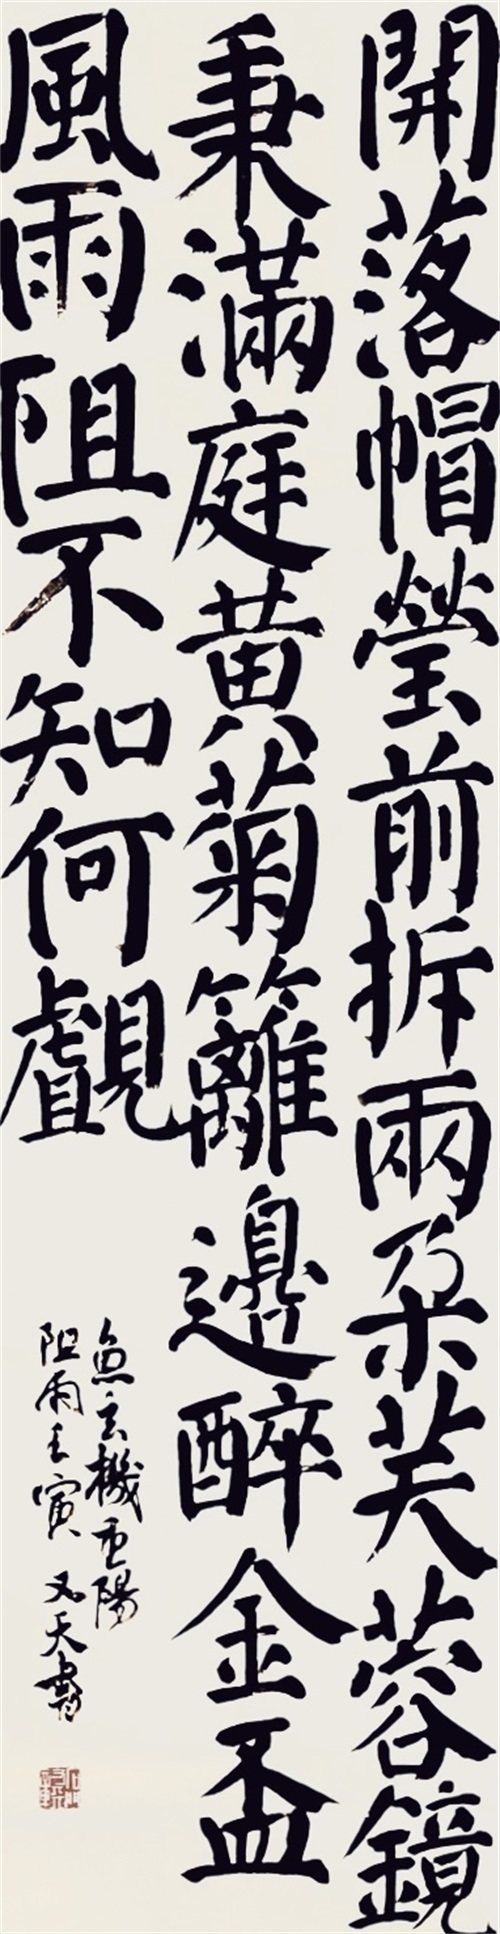 開落帽瑩前拆兩朵芙蓉鏡
秉滿庭黃菊籬邊醉金盃
風雨阻不知何覷
魚玄機重陽
阻雨壬寅又天書